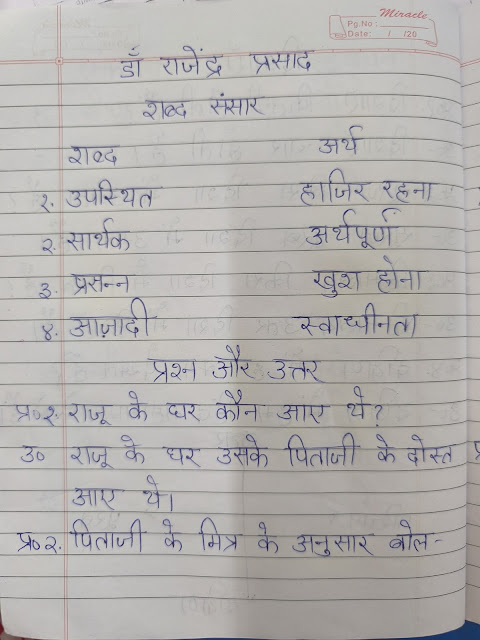 Miracle
Pg.No:
Date: / /20
डॉ राजेंद्र प्रसाद
शब्द संसार
शब्द अर्थ
१. उपस्थित हाजिर रहना
२. सार्थक अर्थपूर्ण
३. प्रसन्न खुश होना
४. आज़ादी स्वाधीनता
प्रश्न और उत्तर
प्र०१. राजू के घर कौन आए थे?
उ० राजू के घर उसके पिताजी के दोस्त
आए थे।
प्र०२. पिताजी के मित्र के अनुसार बोल-